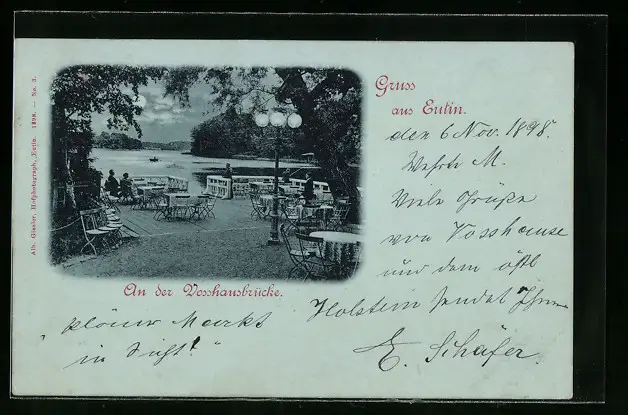 Gruss
aus Eutin.
den 6 Nov. 1898.
Werte M.
Viele Grüße
von Vosshause
und dem östl
Holstein sendet Ihnen
E. Schäfer.
An der Vosshausbrücke.
Markt
in Sicht!"
Alb. Giesler, Hofphotograph, Eutin. 1898. — No. 3.